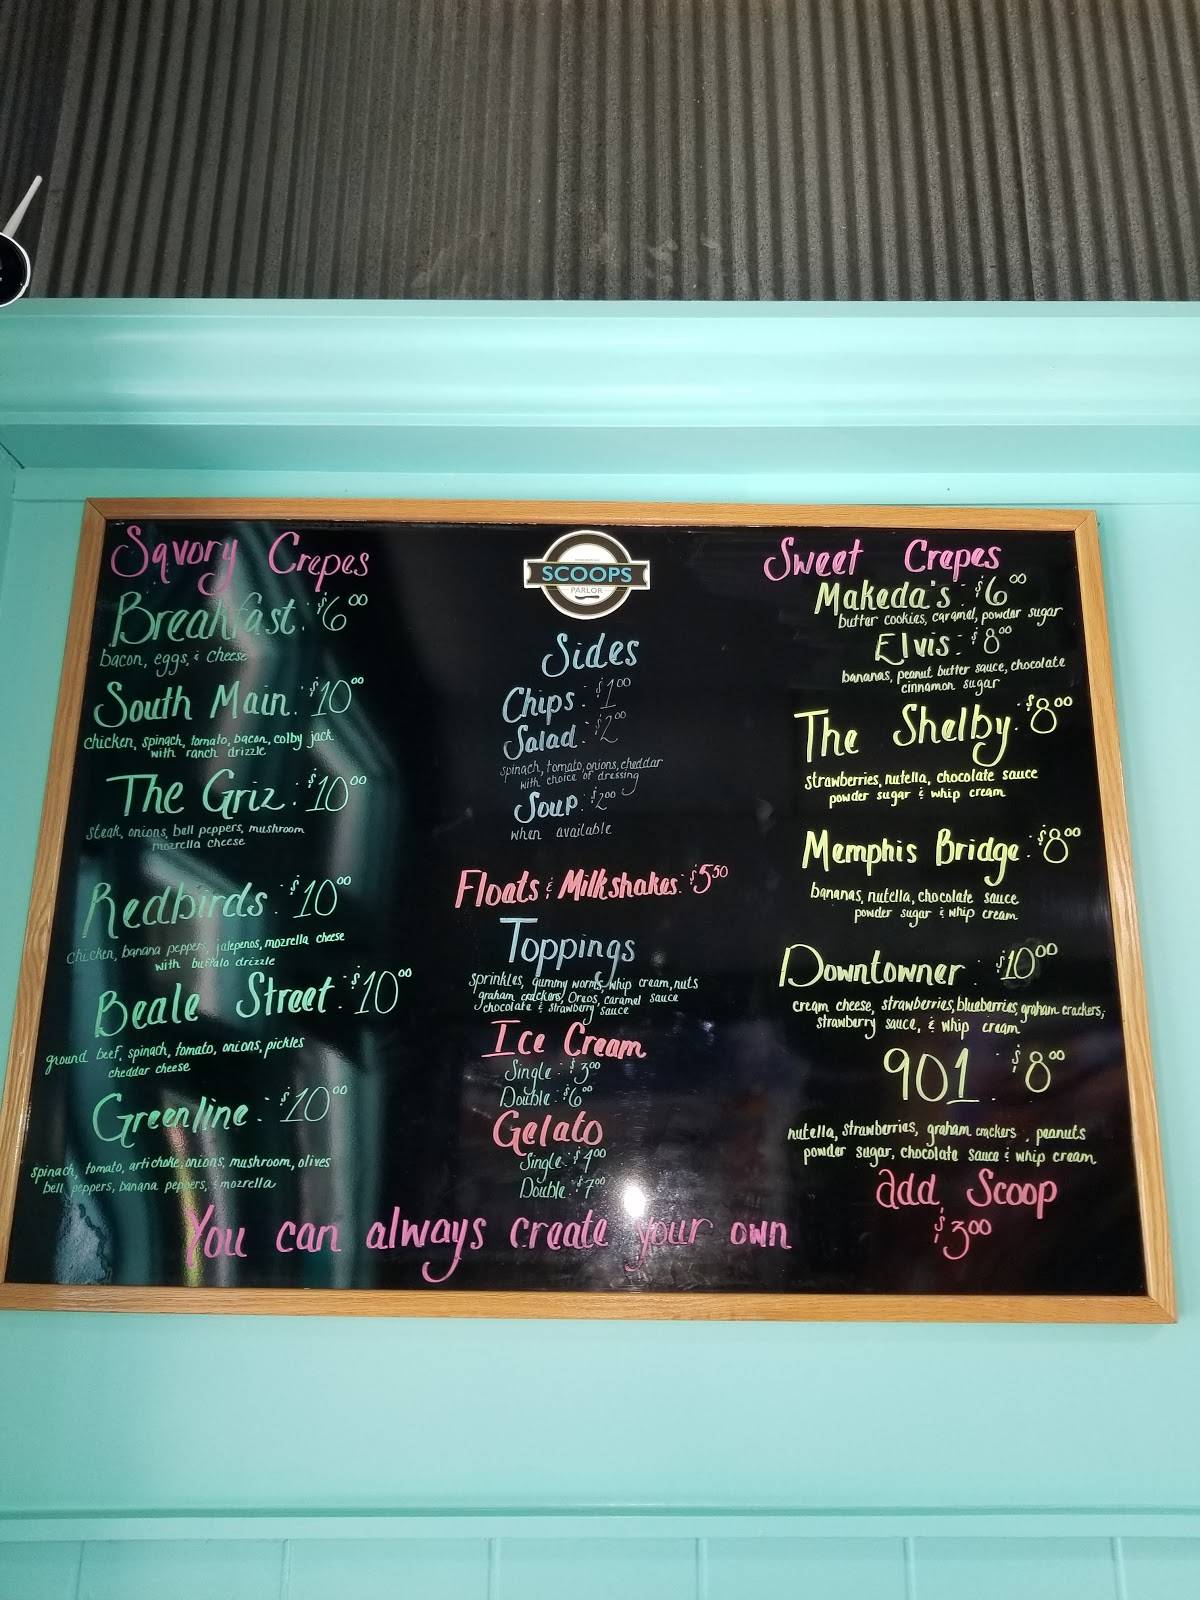 Savory Crepes
Breakfast: $6.00
bacon, eggs, & cheese
South Main: $10.00
chicken, spinach, tomato, bacon, colby jack
with ranch drizzle
The Griz: $10.00
steak, onions, bell peppers, mushroom
mozrella cheese
Redbirds: $10.00
chicken, banana peppers, jalepenos, mozrella cheese
with buffalo drizzle
Beale Street: $10.00
ground beef, spinach, tomato, onions, pickles
cheddar cheese
Greenline: $10.00
spinach, tomato, artichoke, onions, mushroom, olives
bell peppers, banana peppers, & mozrella
SCOOPS
PARLOR
Sides
Chips: $1.00
Salad: $2.00
spinach, tomato, onions, cheddar
with choice of dressing
Soup: $2.00
when available
Floats & Milkshakes: $5.50
Toppings
sprinkles, gummy worms, whip cream, nuts
graham crackers, Oreos, caramel sauce
chocolate & strawberry sauce
Ice Cream
Single: $3.00
Double: $6.00
Gelato
Single: $4.00
Double: $7.00
Sweet Crepes
Makeda's: $6.00
butter cookies, caramel, powder sugar
Elvis: $8.00
bananas, peanut butter sauce, chocolate
cinnamon sugar
The Shelby: $8.00
strawberries, nutella, chocolate sauce
powder sugar & whip cream
Memphis Bridge: $8.00
bananas, nutella, chocolate sauce
powder sugar & whip cream
Downtowner: $10.00
cream cheese, strawberries, blueberries, graham crackers,
strawberry sauce, & whip cream
901: $8.00
nutella, strawberries, graham crackers, peanuts
powder sugar, chocolate sauce & whip cream
add Scoop
$3.00
You can always create your own